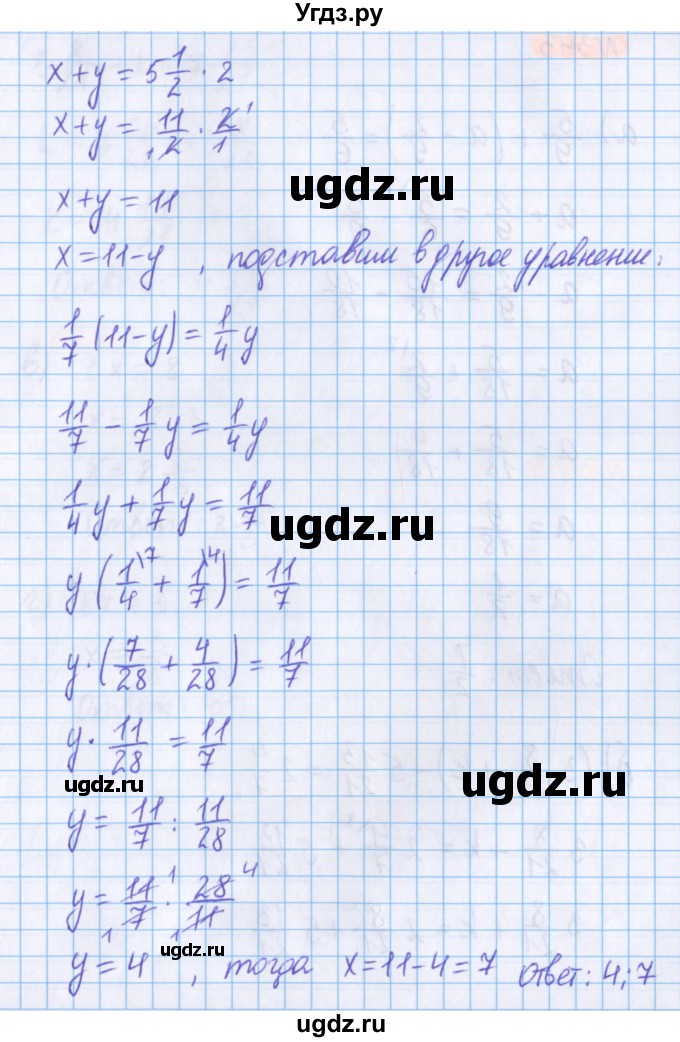 Угдз.ру
x+y = 5 1/2 · 2
x+y = 11/2 · 2/1 1 1
ugdz.ru
x+y = 11
x = 11-y , подставим в другое уравнение:
1/7 (11-y) = 1/4 y
11/7 - 1/7 y = 1/4 y
1/4 y + 1/7 y = 11/7
ugdz.ru
y (1/4 \7 + 1/7 \4) = 11/7
y · (7/28 + 4/28) = 11/7
y · 11/28 = 11/7
ugdz.ru
ugdz.ru
y = 11/7 : 11/28
y = 11/7 · 28/11 1 4 1 1
y = 4 , тогда x = 11-4 = 7 Ответ: 4; 7
ugdz.ru